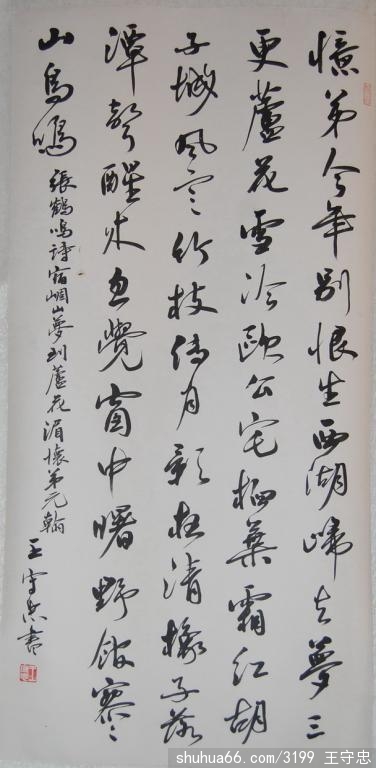 憶弟今年別恨生西湖歸去夢三
更蘆花雪冷歐公宅葉霜紅胡
子城風定竹枝傳月影清橡子落
潭聲醒來忽覺窗中曙野館寥〻
山鳥鳴
張鶴鳴詩宿崆山夢到蘆花湄懷弟元翰
王守忠書
shuhua66.com/3199 王守忠